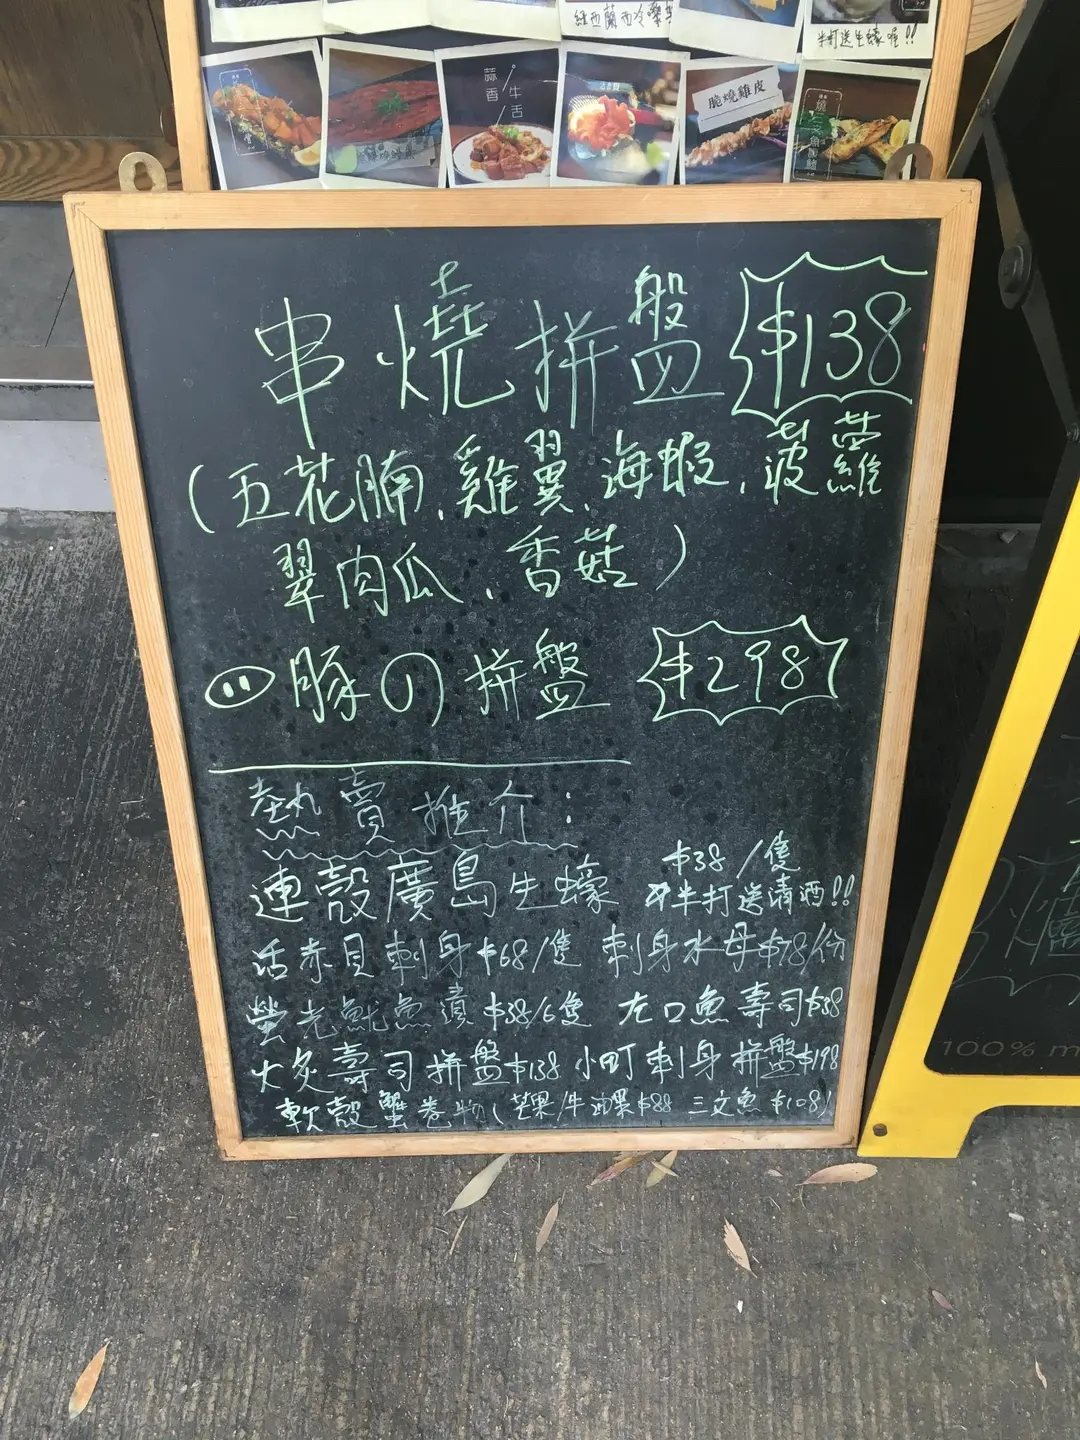 紐西蘭西冷
半打送生蠔喔!!
蒜香
牛舌
脆燒雞皮
串燒拼盤 $138
(五花腩、雞翼、海蝦、菠蘿
翠肉瓜、香菇)
豚の拼盤 $298
熱賣推介:
連殼廣島生蠔 $38/隻
半打送清酒!!
活赤貝刺身$68/隻 刺身水母$78/份
螢光魷魚漬$38/6隻 左口魚壽司$38
火炙壽司拼盤$138 小町刺身拼盤$198
軟殼蟹卷物(芒果/牛油果$88 三文魚$108)
100% m